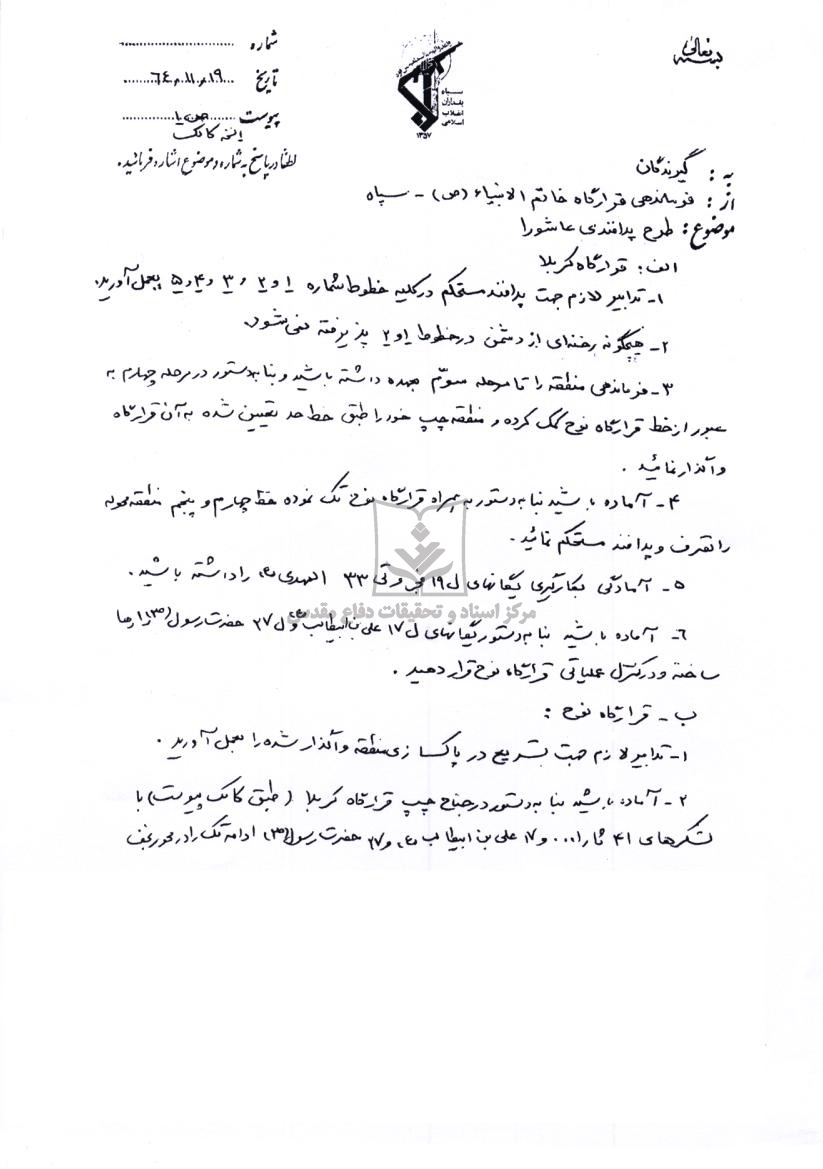 بسمه تعالی
شماره ........................
تاریخ ...۶۴/۱۱/۱۹........
پیوست ........
لطفاً در پاسخ به شماره و موضوع اشاره فرمائید.
سپاه
پاسداران
انقلاب
اسلامی
۱۳۵۷
به : گیرندگان
از : فرماندهی قرارگاه خاتم الانبیاء (ص) - سپاه
موضوع : طرح پدافندی عاشورا
الف : قرارگاه کربلا
۱- تدابیر لازم جهت پدافند مستحکم در کلیه خطوط شماره ۱ و ۲ و ۳ و ۴ و ۵ بعمل آورید.
۲- هیچگونه رخنه‌ای از دشمن در خطوط ۱ و ۲ پذیرفته نمی‌شود.
۳- فرماندهی منطقه را تا مرحله سوّم بعهده داشته باشید و بنا به دستور در مرحله چهارم به
عبور از خط قرارگاه نوح کمک کرده و منطقه چپ خود را طبق خط حد تعیین شده به آن قرارگاه
واگذار نمائید .
۴- آماده باشید بنا به دستور به همراه قرارگاه نوح تک نموده خط چهارم و پنجم منطقه محوله
را تصرف و پدافند مستحکم نمائید .
۵- آمادگی بکارگیری یگانهای ل ۱۹ فجر و تی ۳۳ المهدی (عج) را داشته باشید .
مرکز اسناد و تحقیقات دفاع مقدس
۶- آماده باشید بنا به دستور یگانهای ل ۱۷ علی بن ابیطالب (ع) و ل ۲۷ حضرت رسول (ص) را رها
ساخته و در کنترل عملیاتی قرارگاه نوح قرار دهید .
ب - قرارگاه نوح :
۱- تدابیر لازم جهت تسریع در پاکسازی منطقه واگذار شده را بعمل آورید .
۲- آماده باشید بنا به دستور در جناح چپ قرارگاه کربلا (طبق کالک پیوست) با
لشکرهای ۴۱ ثارا... و ۱۷ علی بن ابیطالب (ع) و ۲۷ حضرت رسول (ص) ادامه تک را در محور